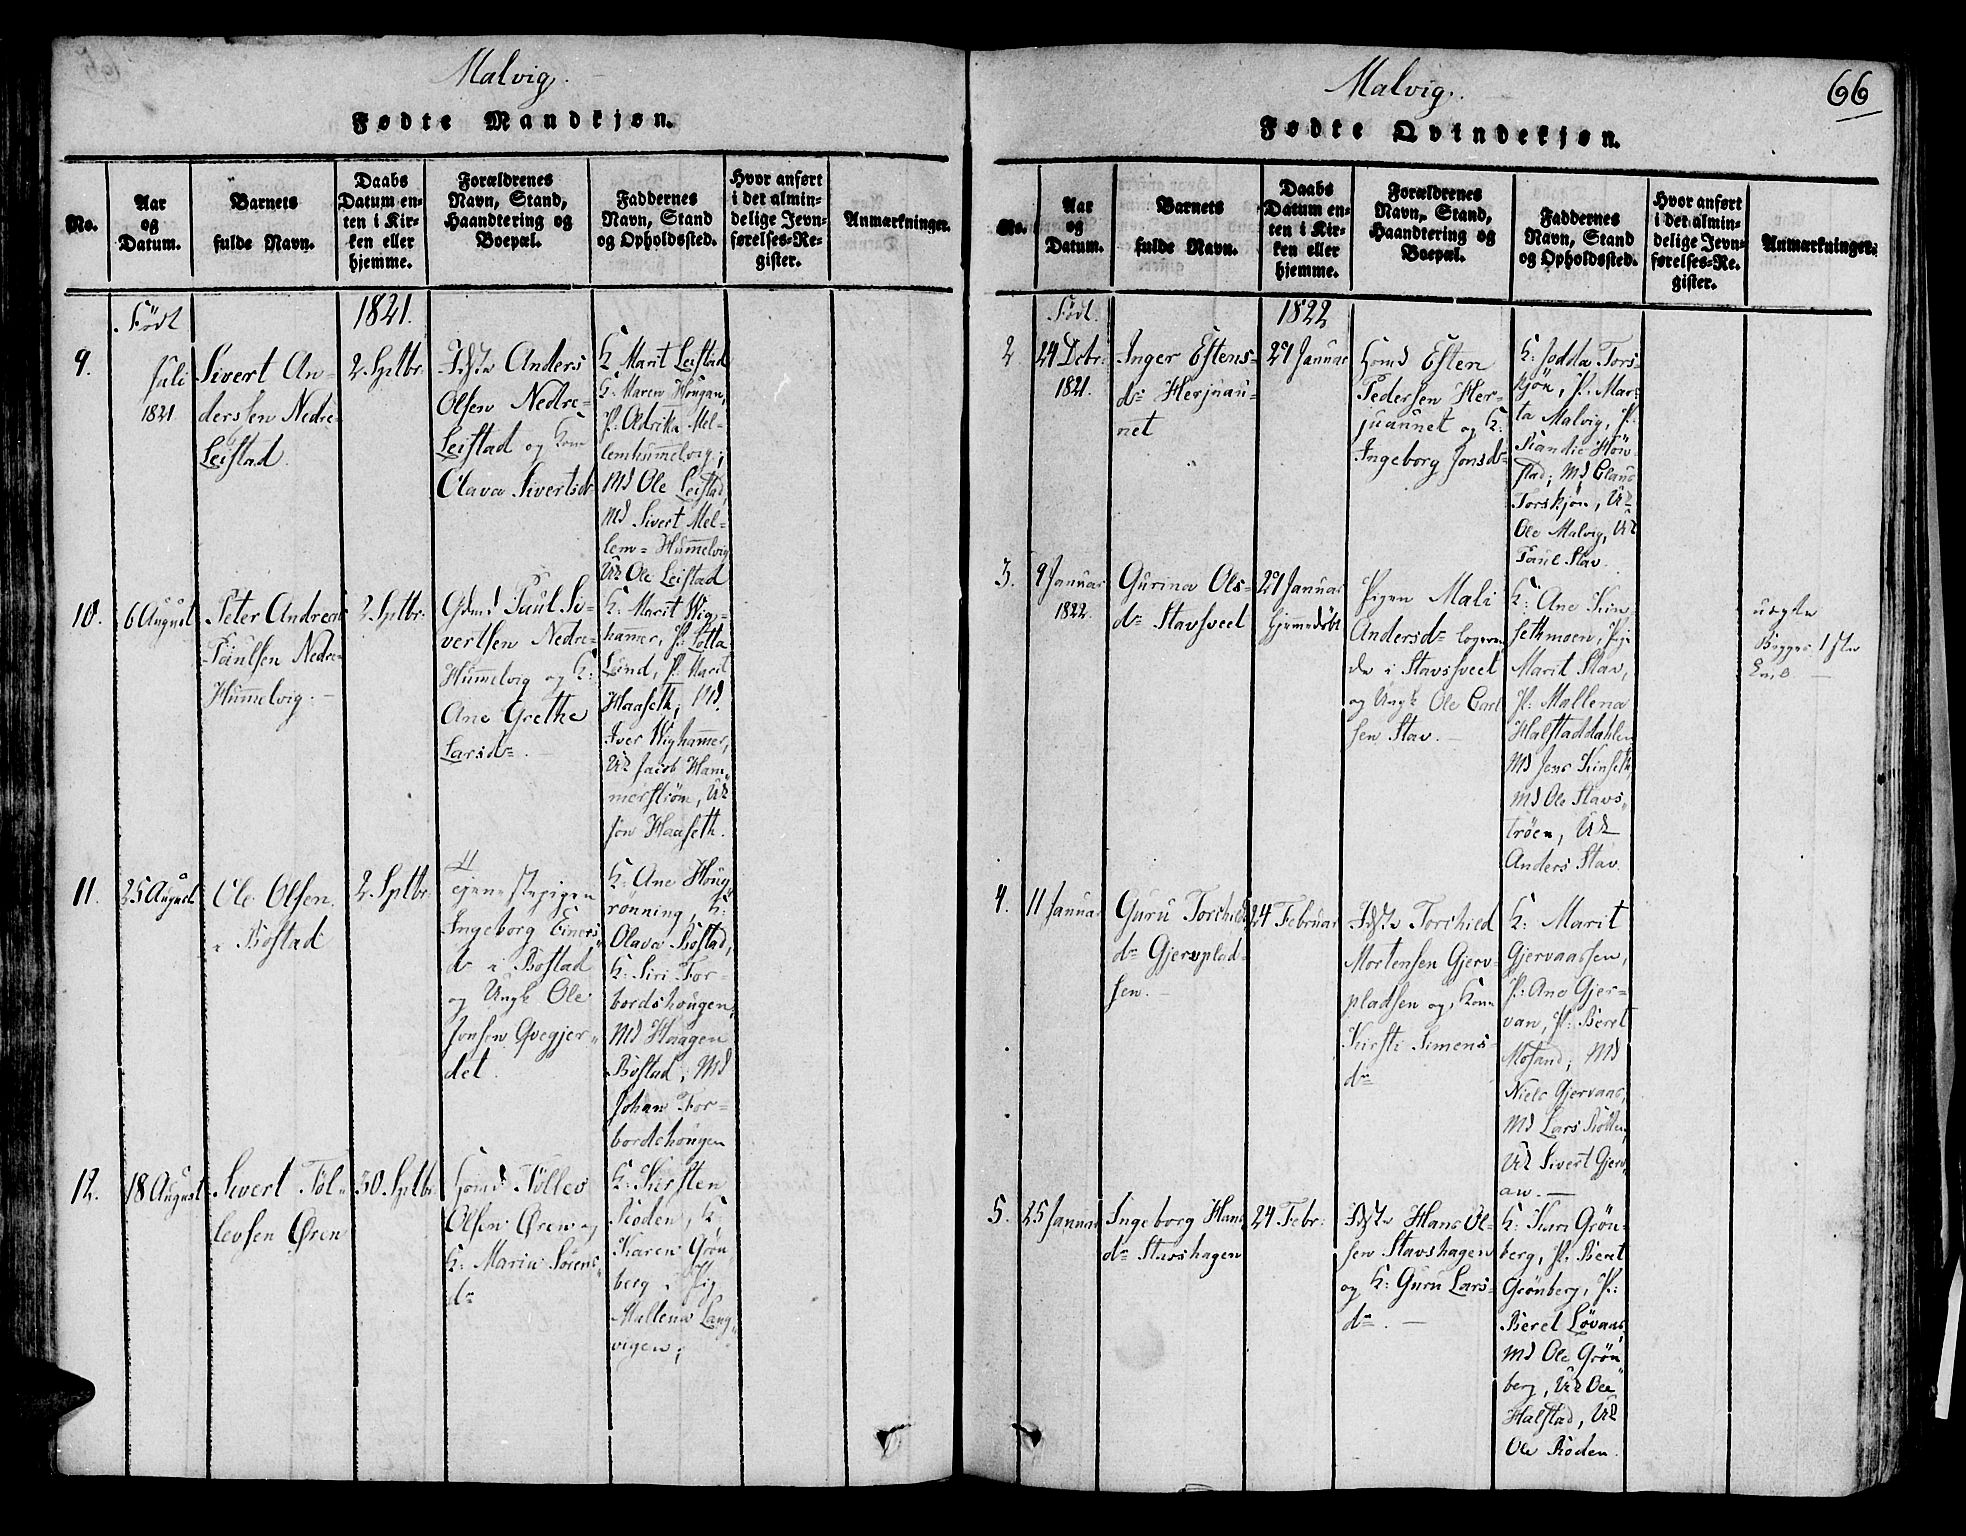 Malvig.
Fødte Mandkjøn.
No.
Aar
og
Datum.
Barnets
fulde Navn.
Daabs
Datum en-
ten i Kir-
ken eller
hjemme.
Forældrenes
Navn, Stand,
Haandtering og
Boepæl.
Faddernes
Navn, Stand
og Opholdssted.
Hvor anført
i det almin-
delige Jevn-
førelses-Re-
gister.
Anmærkninger.
Födt
1821.
9.
Juli
1821
Sivert An-
dersen Nedre
Leistad.
2. Sptbr.
Anders
Olsen Nedre-
Leistad og Kone
Olava Sivertsd.
K. Marit Leistad
K: Maren Hougan,
P. Aldrika Mel-
lemhummelvig;
Md Ole Leistad,
Md Sivert Mel-
lem-Hummelvig
Uk Ole Leistad
10.
6 August
Peter Andreas
Paulsen Nedre
Hummelvig. -
2. Sptbr.
Gdmd Paul Si-
vertsen Nedre-
Hummelvig og K:
Ane Grethe
Larsd.
K: Marit Wig-
hammer, P: Lotta
Lund, P. Marit
Haaseth; Md.
Iver Wighammer,
Uk Jacob Ham-
merstrøm, Uk
Jon Haaseth.
11.
25 August
Ole Olsen
Bostad
2. Sptbr
Tjenestepigen
Ingeborg Einers
d. i Bostad
og Ungk Ole
Jonsen Qvegjer-
det.
K: Ane Houg
rønning, K:
Olava Bostad,
K: Siri For-
bordshougen,
Md Haagen
Bostad, Md
Johan For-
bordshougen
12.
18 August
Sivert Töl-
levsen Øren
30. Sptbr
Huusmd Töllev
Olsen Øren og
K: Maria Sörens
d.
K: Kirsten
Roden, K,
Karen Grön
berg, Pig
Mallena Lang
vigen;
Malvig.
66
Fødte Qvindekjøn.
No.
Aar
og
Datum.
Barnets
fulde Navn.
Daabs
Datum en-
ten i Kir-
ken eller
hjemme.
Forældrenes
Navn, Stand,
Haandtering og
Boepæl.
Faddernes
Navn, Stand
og Opholdssted.
Hvor anført
i det almin-
delige Jevn-
førelses-Re-
gister.
Anmærkninger.
Födt.
1822
2
24 Dcbr.
1821.
Inger Estens-
d. Herjuau-
net
27 Januar
Esten
Pedersen Her-
juaunet og K:
Ingeborg Jonsd.
K: Jodda Tors-
kjön, P: Mar-
ta Malvig, P.
Hön-
stad; Md Claus
Torskjön, Uk
Ole Malvig, Uk
Paul Stav
3.
9 Januar
1822.
Gurina Ols-
d. Stavsveet
27 Januar
hjemmedöbt
Pigen Mali
Andersd. logeren
de i Stavsveet
og Ungk Ole Carl
sen Stav. -
K: Ane Kin
sethmoen, Pig
Marit Stav,
P: Mallena
Halstaddahlen
Md Jens Kinseth,
Md Ole Stavs
tröen, Uk
Anders Stav.
uægte
Begges 1ste
4.
11 Januar
Guru Torshields
d. Gjervplad-
sen. -
24 Februar
Torshield
Mortensen Gjerv-
pladsen og Kone
Kirsti Simens-
d.
K: Marit
Gjervaassen,
P: Ane Gjer-
van, P: Beret
Mosand; Md
Niels Gjervaas,
Md Lars Rotten,
Uk Sivert Gjerv
an. -
5.
25 Januar
Ingeborg Hans
d. Stavshagen
24 Febr.
Hans Ol-
sen Stavshagen
og K: Guru Lars-
d. -
K: Kari Grön-
berg, P: Beret
Grönberg, P:
Beret Lövaas
Md Ole Grön
berg, Uk Ole
Halstad, Uk
Ole Roden.